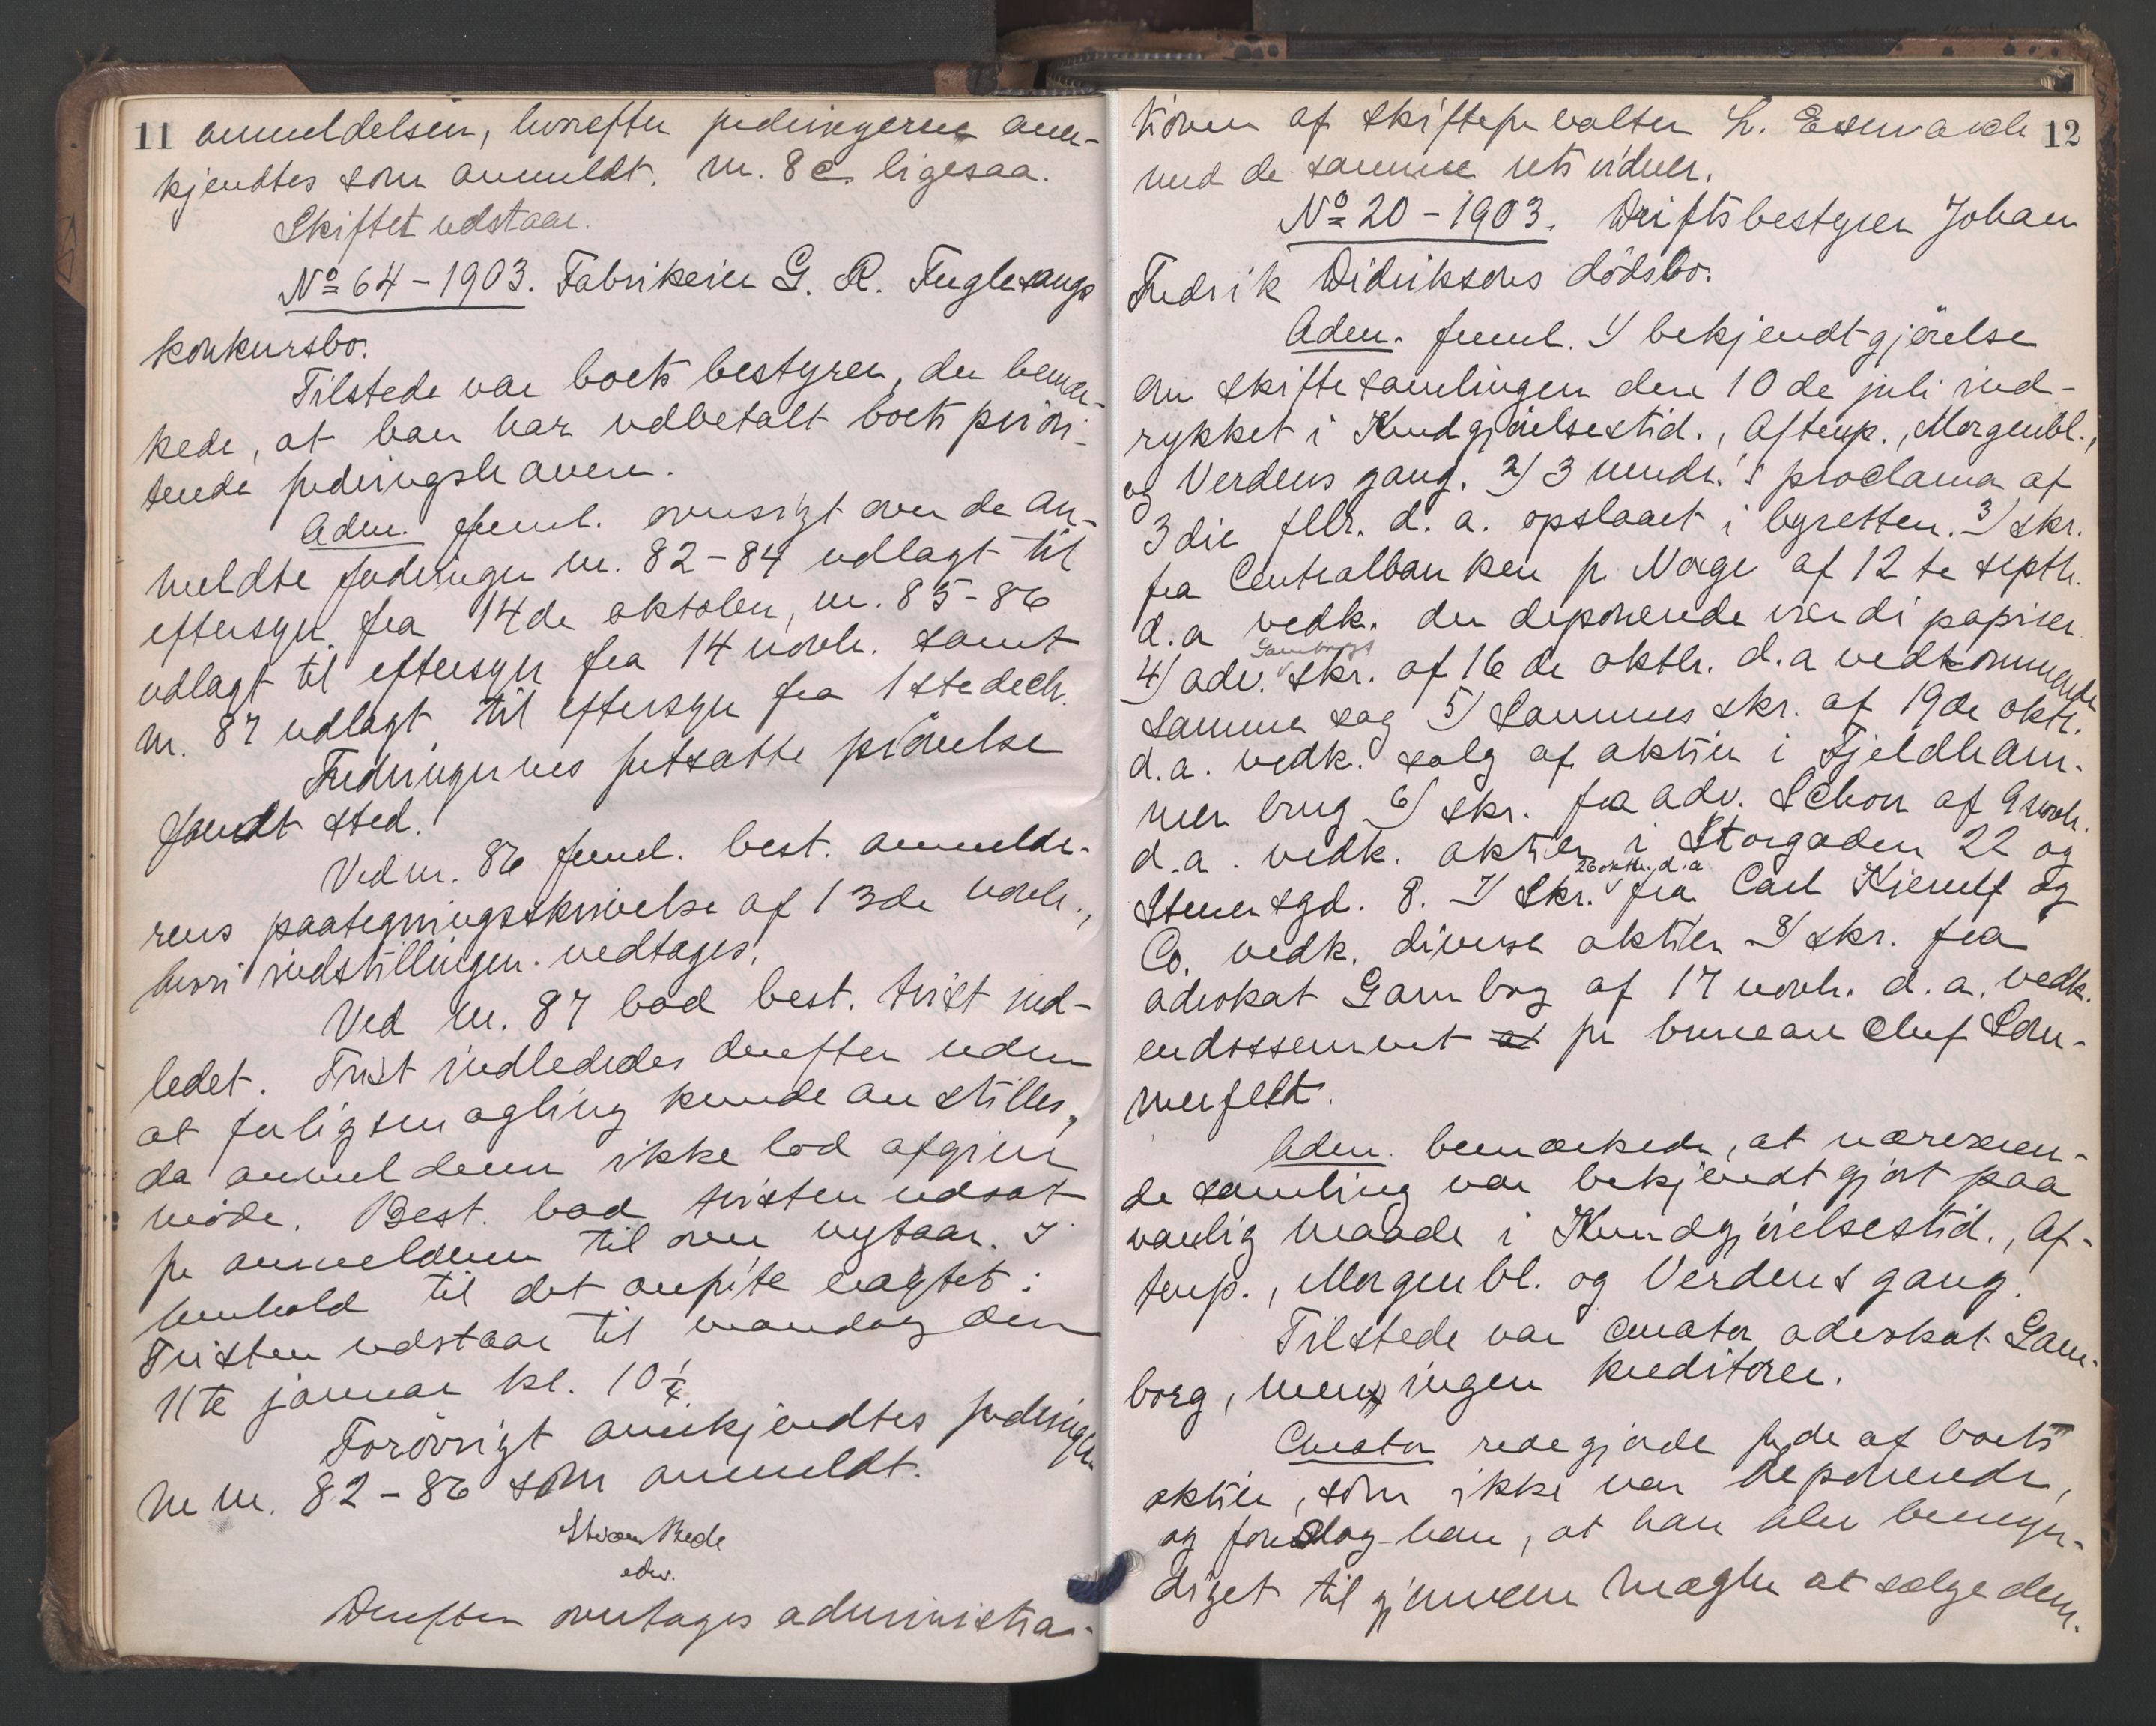 11 anmeldelsen, hvorefter fordringerne aner-
kjendtes som anmeldt. nr. 8 c. ligesaa.
Skiftet udstaar.
No 64 - 1903. Fabrikeier G. R. Fuglesangs
konkursbo.
Tilstede var boets bestyrer, der bemær-
kede, at han har udbetalt boets priori-
terede fordringshavere.
Adm. freml. oversigt over de an-
meldte fordringer nr. 82-84 udlagt til
eftersyn fra 14de oktober, nr. 85-86
udlagt til eftersyn fra 14 novbr. samt
nr. 87 udlagt til eftersyn fra 1ste decbr.
Fordringernes fortsatte prøvelse
fandt sted.
Ved nr. 86 freml. best. anmelde-
rens paategningsskrivelse af 13de novbr.,
hvori indstillingen vedtages.
Ved nr. 87 bad best. tvist ind-
ledet. Tvist indlededes derefter uden
at forligsmægling kunde anstilles,
da anmelderen ikke lod afgive
møde. Best. bad tvisten udsat
for anmelderen til over nytaar. I
henhold til det anførte eragtet:
Tvisten udstaar til mandag den
11te januar kl. 10 1/4.
Forøvrigt anerkjendtes fordringer
ne nr. 82-86 som anmeldt.
edv.
Derefter overtages administra-
12
tionen af skifteforvalter L.
med de samme retsvidner.
No 20 - 1903. Driftsbestyrer Johan
Fredrik Didriksens dödsbo.
Adm. freml. 1) bekjendtgjørelse
om skiftesamlingen den 10de juli ind-
rykket i Kundgjørelsestid., Aftenp., Morgenbl.,
og Verdens gang. 2) 3 mndr.'s proclama af
3die febr. d. a. opslaaet i byretten. 3) skr.
fra Centralbanken for Norge af 12te septbr.
d.a vedk. der deponerede værdipapirer
4) adv. Gamborgs skr. af 16de oktbr. d.a vedkommende
samme sag 5) Sammes skr. af 19de oktbr.
d.a. vedk. salg af aktier i Fjeldham-
mer brug 6) skr. fra adv. Schou af 9 novbr.
d.a. vedk. aktier i Storgaden 22 og
Stenersgd. 8. 7) Skr. 26 oktbr. d.a fra Carl Kierulf og
Co. vedk. diverse aktier 8) skr. fra
advokat Gamborg af 17 novbr. d.a. vedk.
endossement af for bureauchef Som-
merfeldt.
Adm. bemærkede, at nærværen-
de samling var bekjendtgjort paa
vanlig maade i Kundgjørelsestid., Af-
tenp., Morgenbl. og Verdens gang.
Tilstede var curator advokat Gam-
borg, men ingen kreditorer.
Curator redegjorde for de af boets
aktier, som ikke var deponerede,
og foreslog han, at han blev bemyn-
diget til gjennem mægler at sælge dem.